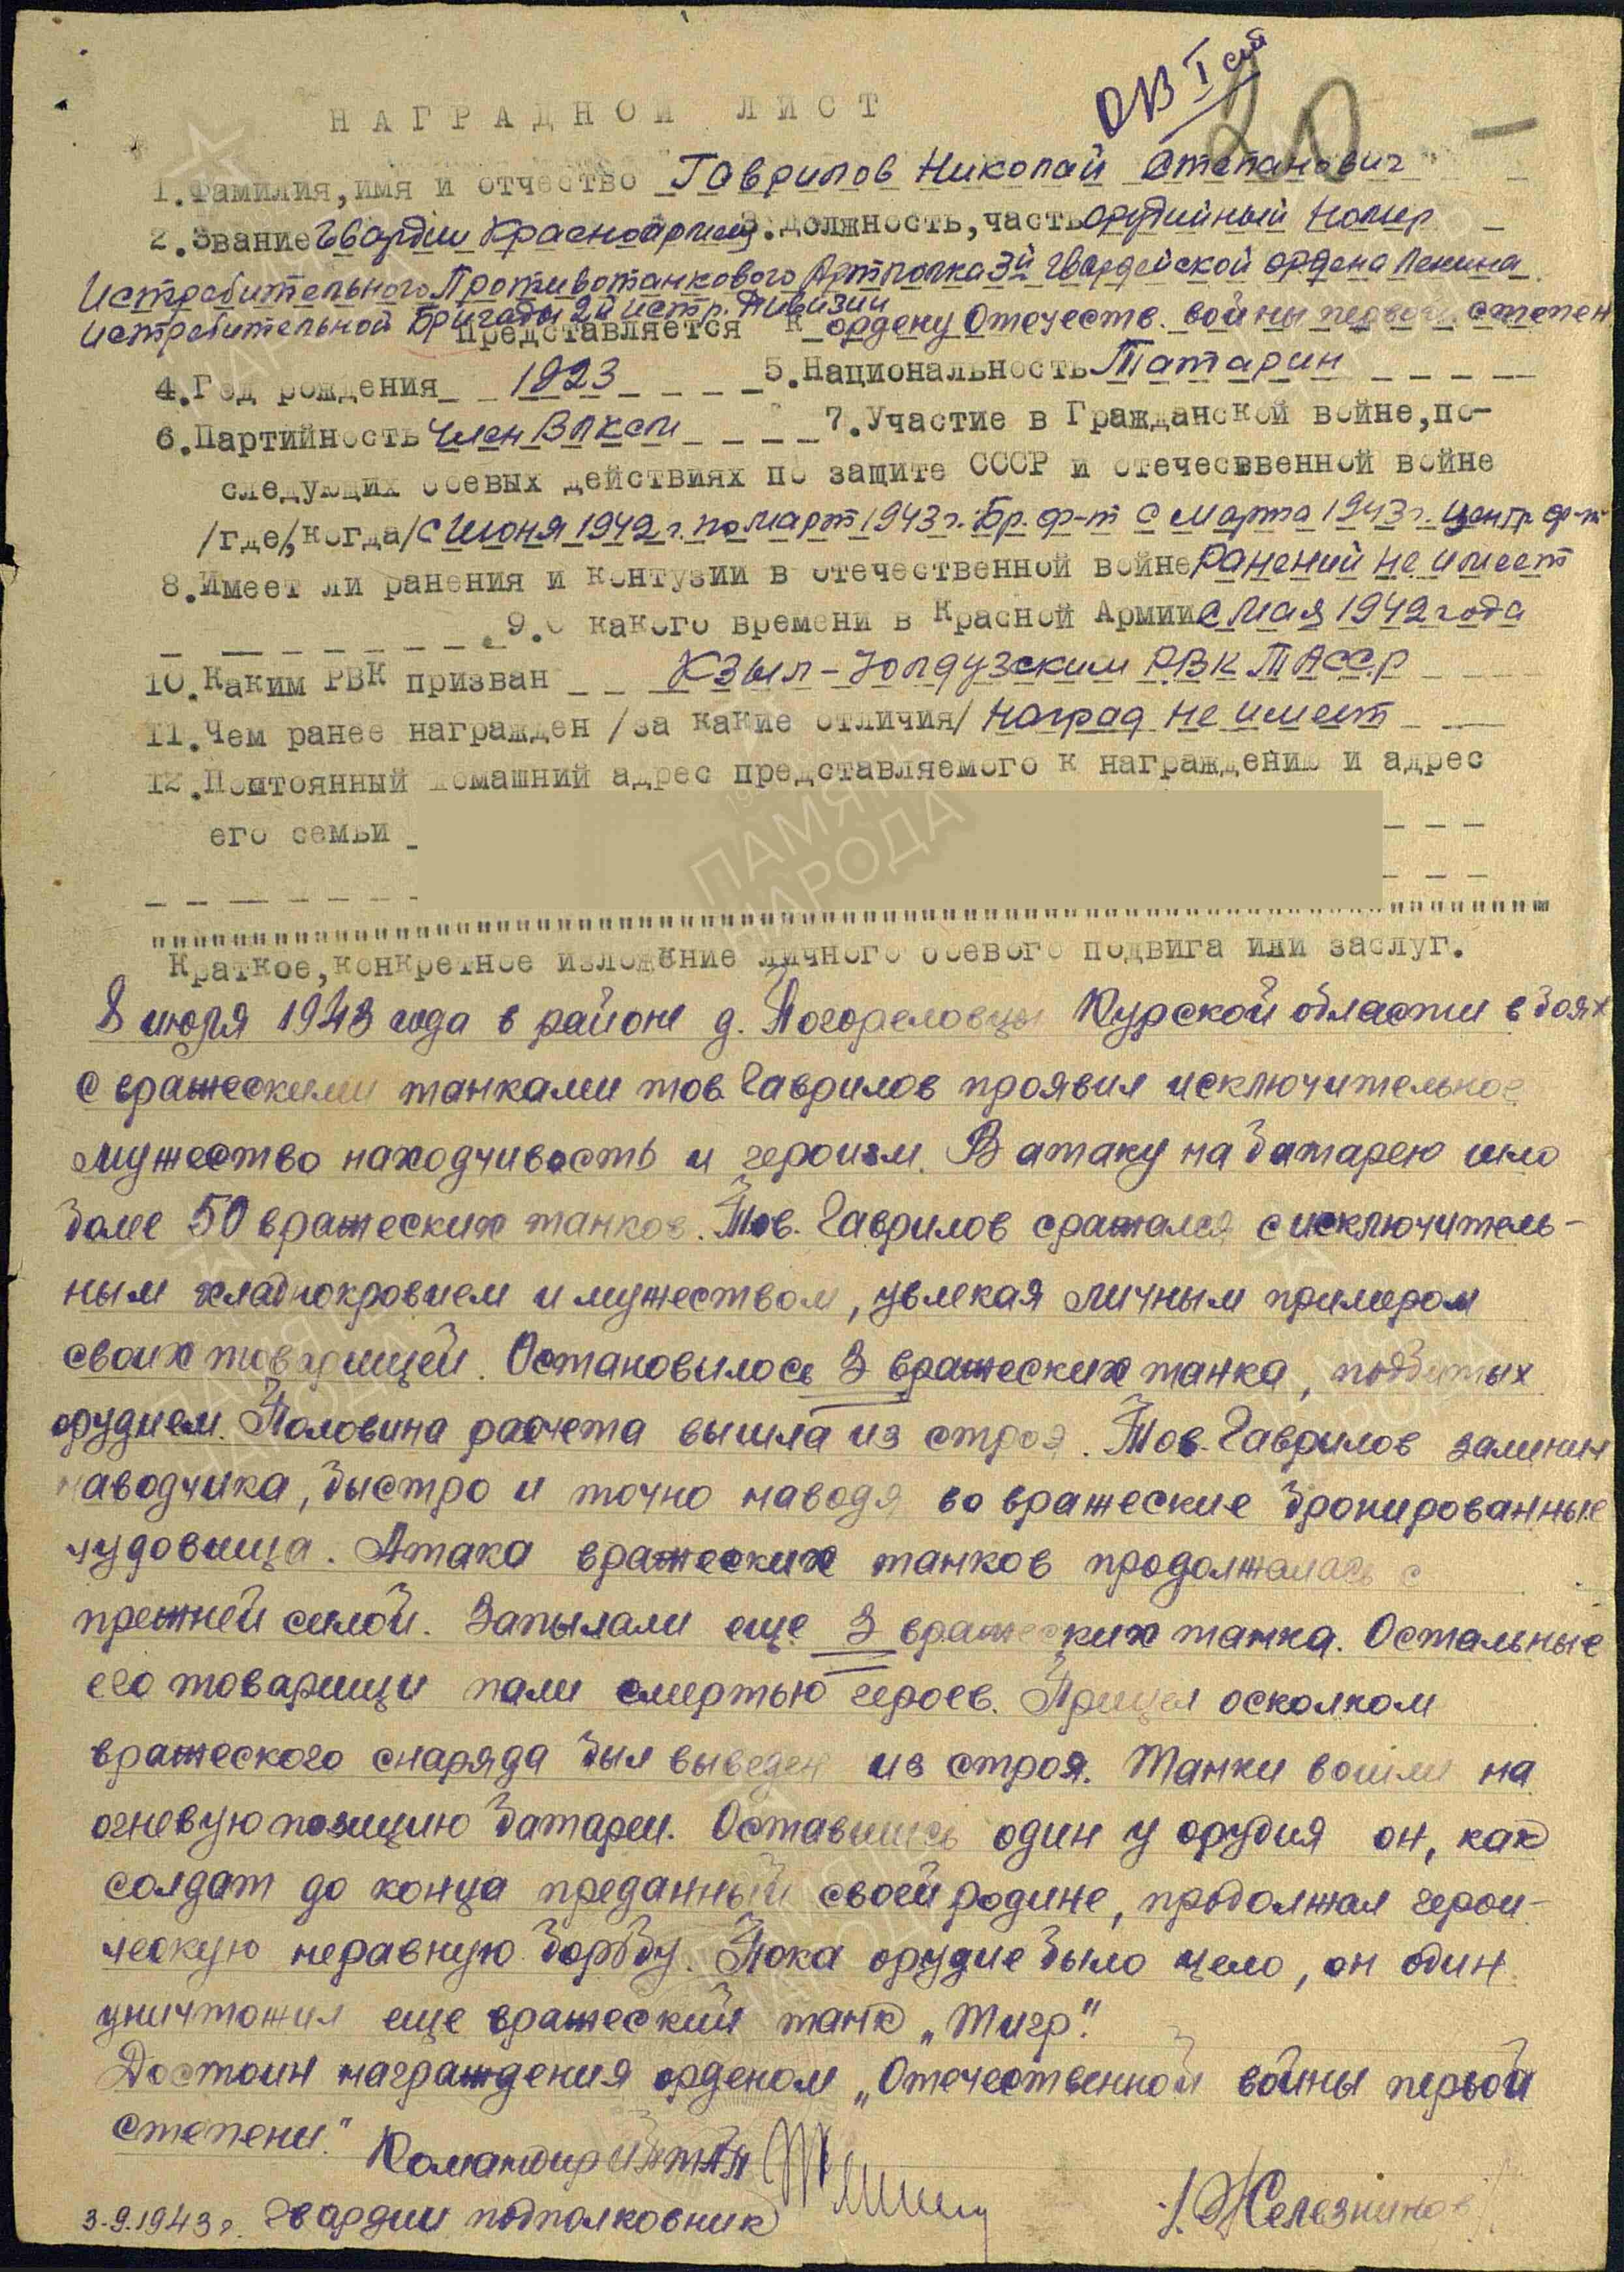 ОВ I ст
20 -
НАГРАДНОЙ ЛИСТ
1. Фамилия, имя и отчество Гаврилов Николай Степанович
2. Звание Гвардии Красноармеец 3. Должность, часть орудийный номер
Истребительного Противотанкового Артполка 3й Гвардейской ордена Ленина
истребительной Бригады 2й истр. Дивизии
Представляется к ордену Отечеств. войны первой степен
4. Год рождения 1923 5. Национальность Татарин
6. Партийность Член ВЛКСМ 7. Участие в Гражданской войне, по-
следующих боевых действиях по защите СССР и отечественной войне
/где, когда/ с июня 1942 г. по март 1943 г. Бр. ф-т с марта 1943 г. центр. ф-т
8. Имеет ли ранения и контузии в отечественной войне Ранений не имеет
9. С какого времени в Красной Армии с мая 1942 года
10. Каким РВК призван Кзыл-Юлдузским РВК ТАССР
11. Чем ранее награжден /за какие отличия/ наград не имеет
12. Постоянный домашний адрес представляемого к награждению и адрес
его семьи
Краткое, конкретное изложение личного боевого подвига или заслуг.
8 июля 1943 года в районе д. Погореловцы Курской области в боях
с вражескими танками тов. Гаврилов проявил исключительное
мужество находчивость и героизм. В атаку на батарею шло
более 50 вражеских танков. Тов. Гаврилов сражался с исключитель-
ным хладнокровием и мужеством, увлекая личным примером
своих товарищей. Остановилось 3 вражеских танка, подбитых
орудием. Половина расчета вышла из строя. Тов. Гаврилов заменил
наводчика, быстро и точно наводя во вражеские бронированные
чудовища. Атака вражеских танков продолжалась с
прежней силой. Запылали еще 3 вражеских танка. Остальные
его товарищи пали смертью героев. Прицел осколком
вражеского снаряда был выведен из строя. Танки вошли на
огневую позицию батареи. Оставшись один у орудия он, как
солдат до конца преданный своей родине, продолжал герои-
ческую неравную борьбу. Пока орудие было цело, он один
уничтожил еще вражеский танк „Тигр".
Достоин награждения орденом „Отечественной войны первой
степени."
Командир ИПТАП
3.9.1943 г. Гвардии подполковник /Железников/
ПАМЯТЬ
НАРОДА